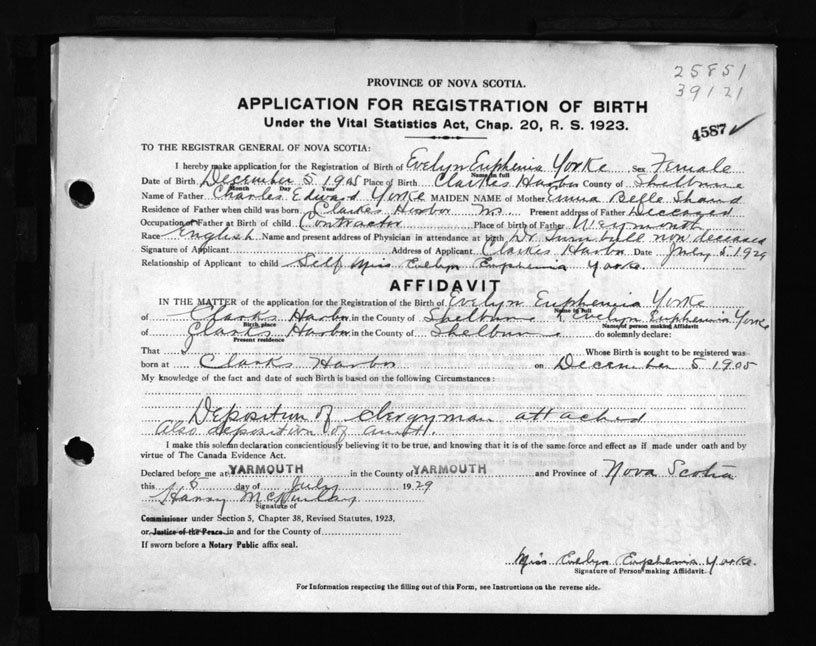 25851
39121
PROVINCE OF NOVA SCOTIA.
APPLICATION FOR REGISTRATION OF BIRTH
Under the Vital Statistics Act, Chap. 20, R. S. 1923.
4587
TO THE REGISTRAR GENERAL OF NOVA SCOTIA:
I hereby make application for the Registration of Birth of Evelyn Euphemia Yorke Sex Female
Name in full
Date of Birth December 5 1905 Place of Birth Clarkes Harbor County of Shelburne
Month Day Year
Name of Father Charles Edward Yorke MAIDEN NAME of Mother Emma Belle Shand
Residence of Father when child was born Clarkes Harbor N.S. Present address of Father Deceased
Occupation of Father at Birth of child Contractor Place of birth of Father Weymouth
Race English Name and present address of Physician in attendance at birth Dr. Turnbull now deceased
Signature of Applicant Address of Applicant Clarkes Harbor Date July 5 1929
Relationship of Applicant to child Self Miss Evelyn Euphemia Yorke.
AFFIDAVIT
IN THE MATTER of the application for the Registration of the Birth of Evelyn Euphemia Yorke
Name in full
of Clarks Harbor in the County of Shelburne I Evelyn Euphemia Yorke
Birth place Name of person making Affidavit
of Clarks Harbor in the County of Shelburne do solemnly declare:
Present residence
That I Whose Birth is sought to be registered was
born at Clarks Harbor on December 5 1905
My knowledge of the fact and date of such Birth is based on the following Circumstances:
Deposition of clergyman attached
Also deposition of aunt.
I make this solemn declaration conscientiously believing it to be true, and knowing that it is of the same force and effect as if made under oath and by
virtue of The Canada Evidence Act.
Declared before me at YARMOUTH in the County of YARMOUTH and Province of Nova Scotia
this 5 day of July 1929
Harry
Signature of
Commissioner under Section 5, Chapter 38, Revised Statutes, 1923,
or Justice of the Peace in and for the County of
If sworn before a Notary Public affix seal.
Miss Evelyn Euphemia Yorke.
Signature of Person making Affidavit.
For Information respecting the filling out of this Form, see Instructions on the reverse side.